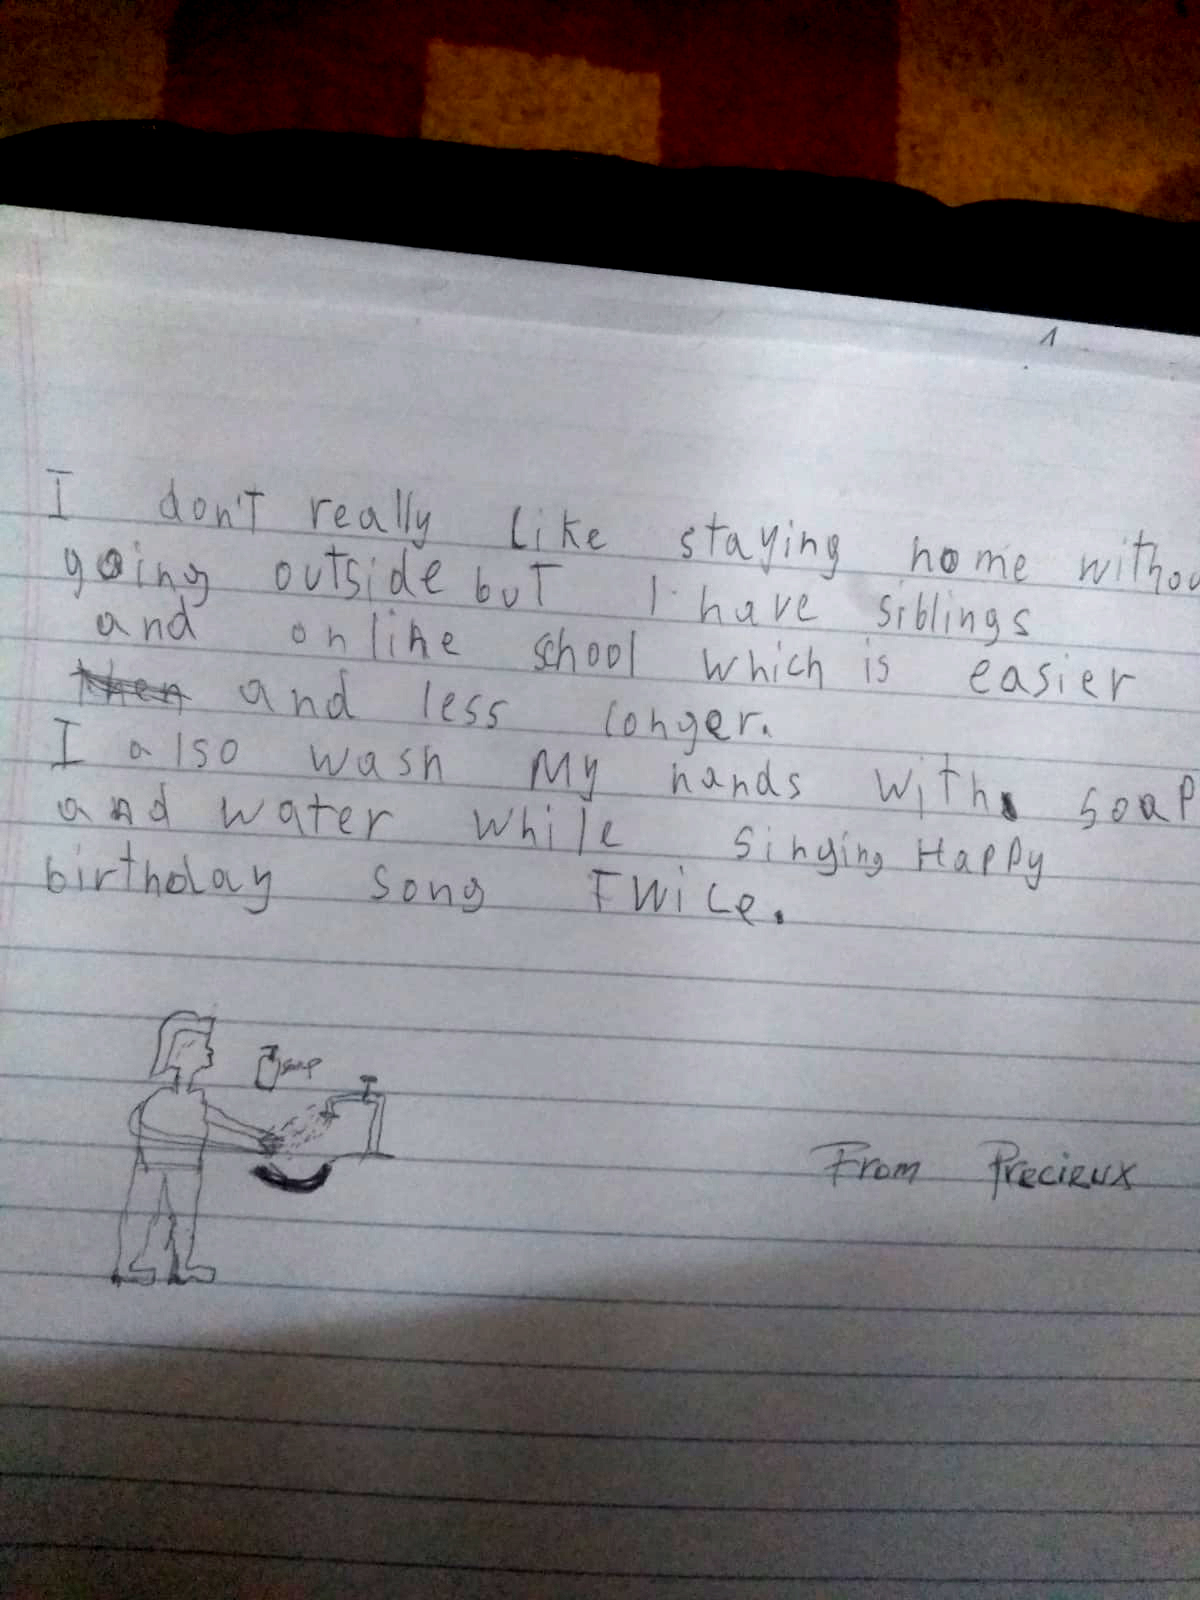 1
I don't really like staying home withou
going outside but I have siblings
and online school which is easier
then and less longer.
I also wash my hands with soap
and water while singing Happy
birthday song Twice.
soap
From Precieux